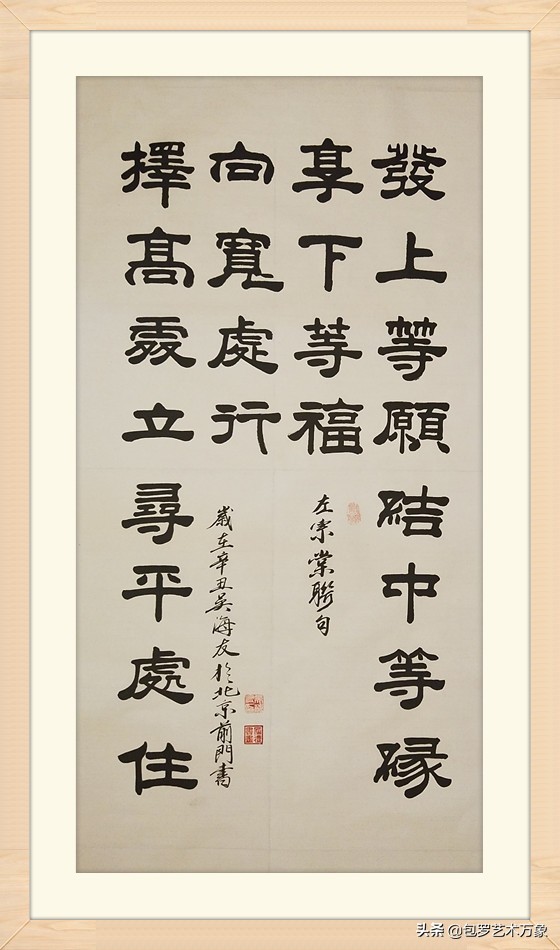 發上等願結中等緣
享下等福
左宗棠聯句
擇高處立尋平處住
向寬處行
歲在辛丑吳海友於北京前門書
头条 @包罗艺术万象